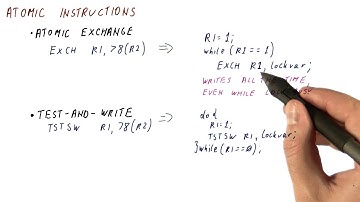 ATOMIC INSTRUCTIONS
• ATOMIC EXCHANGE
EXCH R1, 78(R2) ⇒
R1=1;
while (R1==1)
EXCH R1, lockvar;
WRITES ALL THE TIME,
EVEN WHILE
• TEST-AND-WRITE
TSTSW R1, 78(R2) ⇒
do {
R1=1;
TSTSW R1, lockvar;
} while (R1==0);